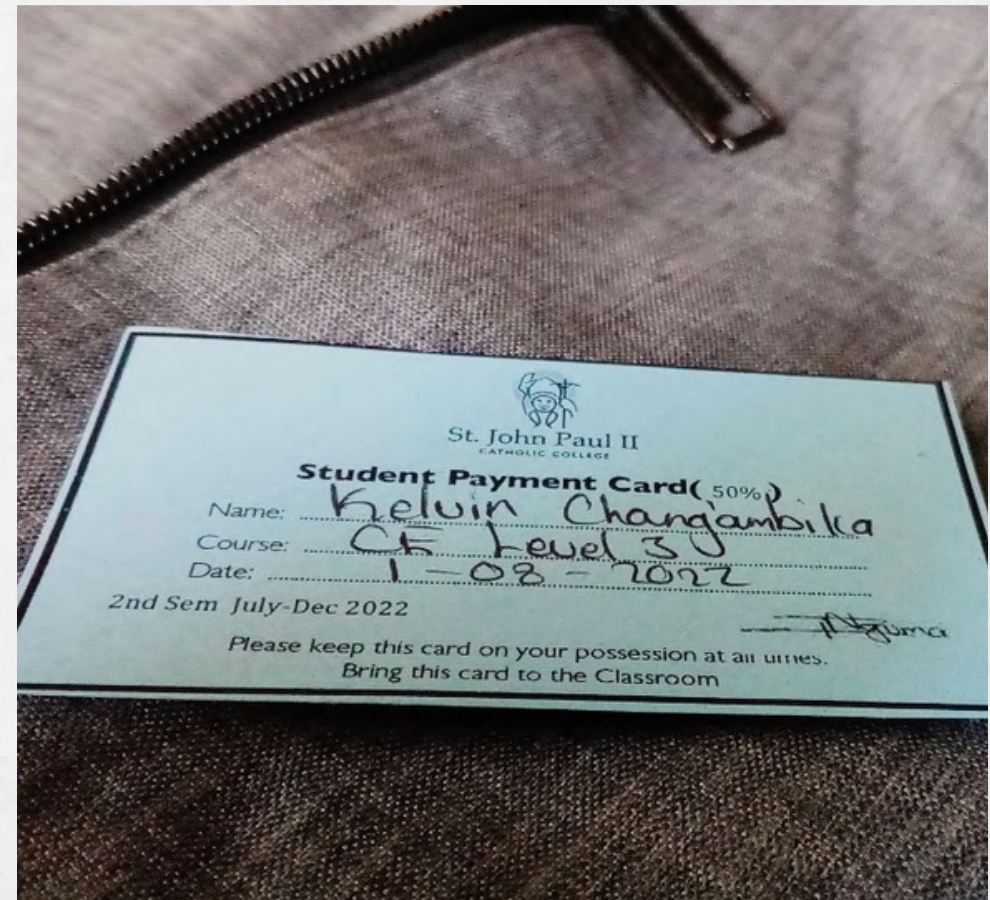 St. John Paul II
CATHOLIC COLLEGE
Student Payment Card( 50% )
Name: Kelvin Chang'ambika
Course: CE Level 3
Date: 1-08-2022
2nd Sem July-Dec 2022
Please keep this card on your possession at all times.
Bring this card to the Classroom